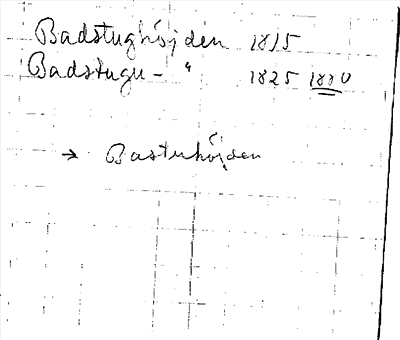 Badstughöjden 1815
Badstugu - " 1825 1880
→ Bastuhöjden